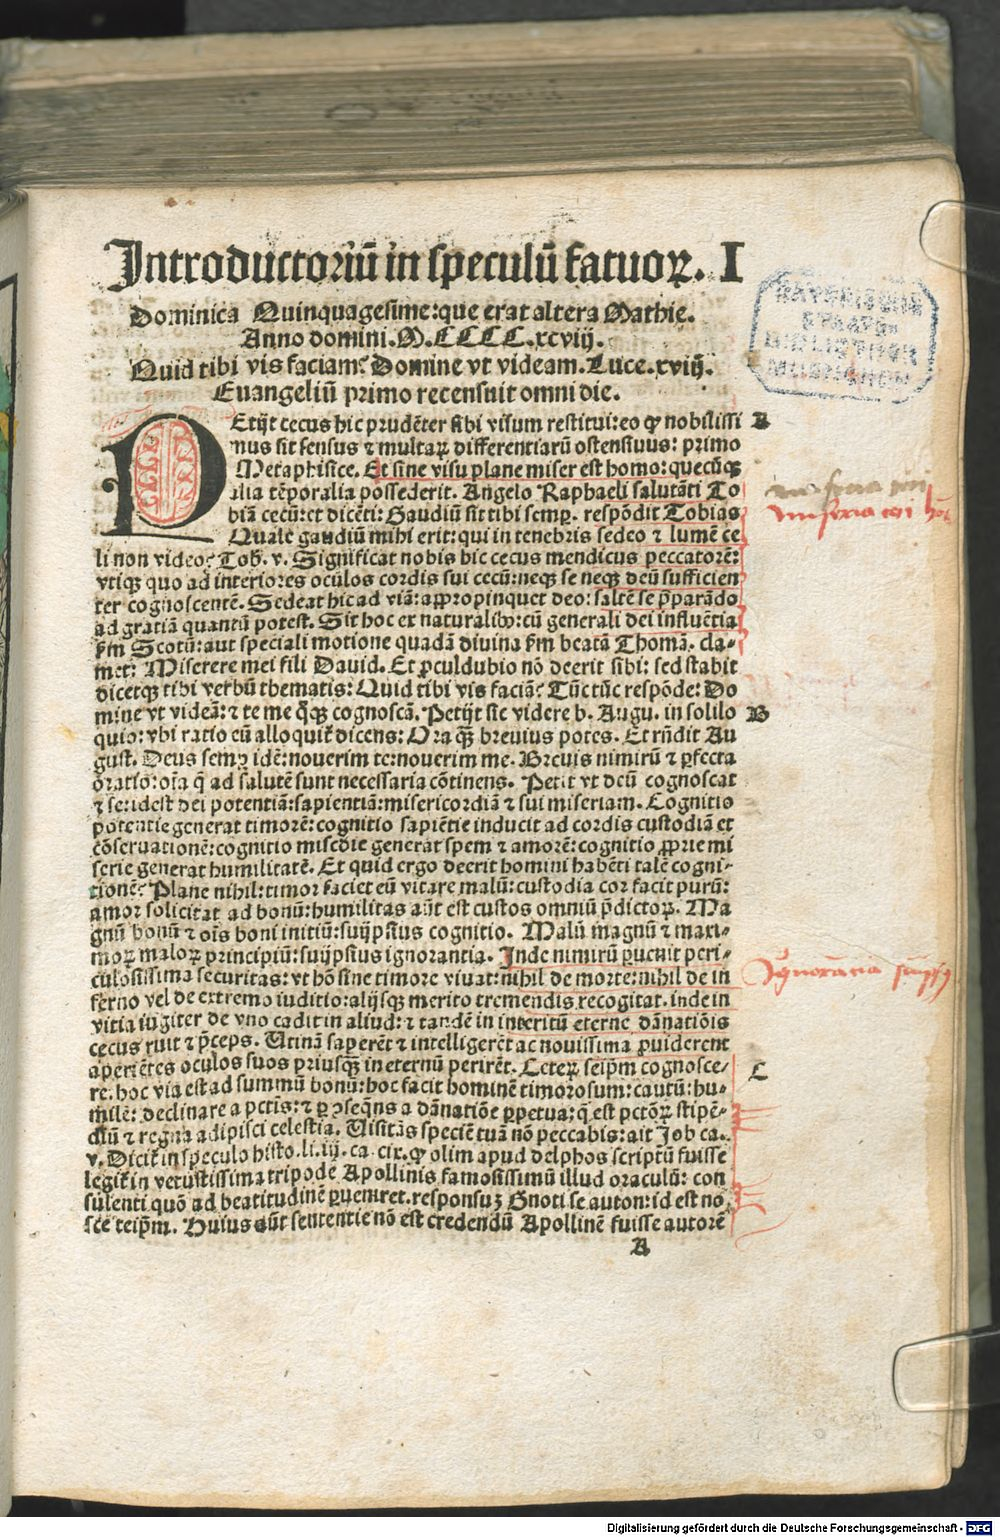 Introductoriū in speculū fatuoꝝ. I
Dominica Quinquagesime: que erat altera Mathie.
Anno domini. M.CCCC.xcviij.
Quid tibi vis faciam? Domine vt videam. Luce. xviij.
Euangeliū primo recensuit omni die.
PEtijt cecus hic prudēter sibi visum restitui: eo ꝙ nobilissi A
mus sit sensus ⁊ multaꝝ differentiarū ostensiuus: primo
Metaphisice. Et sine visu plane miser est homo: quecūqꝫ
alia tēporalia possederit. Angelo Raphaeli salutāti To
biā cecū: et dicēti: Gaudiū sit tibi semꝑ. respōdit Tobias
Quale gaudiū mihi erit: qui in tenebris sedeo ⁊ lumē ce
li non video? Tob. v. Significat nobis hic cecus mendicus peccatorē:
vtiqꝫ quo ad interiores oculos cordis sui cecū: neqꝫ se neqꝫ deū sufficien
ter cognoscentē. Sedeat hic ad viā: appropinquet deo: saltē se p̄parādo
ad gratiā quantū potest. Sit hoc ex naturalibꝫ: cū generali dei influētia
ẜm Scotū: aut speciali motione quadā diuina ẜm beatā Thomā. cla-
met: Miserere mei fili Dauid. Et ꝓculdubio nō deerit sibi: sed stabit
dicetqꝫ tibi verbū thematis: Quid tibi vis faciā? Tūc tu respōde: Do
mine vt videā: ⁊ te me q̄qꝫ cognoscā. Petijt sic videre b. Augu. in solilo B
quio: vbi ratio eū alloquit̄ dicens: Ora qꝫ breuius potes. Et rn̄dit Au
gust. Deus semꝑ idē: nouerim te: nouerim me. Breuis nimirū ⁊ ꝑfecta
oratio: oīa q̄ ad salutē sunt necessaria cōtinens. Petit vt deū cognoscat
⁊ se: idest dei potentiā: sapientiā: misericordiā ⁊ sui miseriam. Cognitio
potentie generat timorē: cognitio sapiētie inducit ad cordis custodiā et
cōseruationē: cognitio mīscdie generat spem ⁊ amorē: cognitio ꝓprie mi
serie generat humilitatē. Et quid ergo deerit homini habēti talē cogni-
tionē? Plane nihil: timor faciet eū vitare malū: custodia cor facit purū:
amor solicitat ad bonū: humilitas aūt est custos omniū p̄dictoꝝ. Ma
gnū bonū ⁊ oīs boni initiū: suijpsius cognitio. Malū magnū ⁊ maxi-
moꝝ maloꝝ principiū: suijpsius ignorantia. Inde nimirū ꝓuenit peri-
culosissima securitas: vt hō sine timore viuat: nihil de morte: nihil de in
ferno vel de extremo iuditio: alijsqꝫ merito tremendis recogitat. inde in
vitia iugiter de vno cadit in aliud: ⁊ tandē in interitū eterne dānatiōis
cecus ruit ⁊ p̄ceps. Vtinā saperēt ⁊ intelligerēt ac nouissima ꝓuiderent
aperiētes oculos suos priusqꝫ in eternū perirēt. Ceteꝝ seip̄m cognosce- C
re. hoc via est ad summū bonū: hoc facit hominē timorosum: cautū: hu-
milē: declinare a pctīs: ⁊ ꝑ ↄseqn̄s a dānatiōe ꝑpetua: q̄ est pctōꝝ stipē-
diū ⁊ regna adipisci celestia. Visitās speciē tuā nō peccabis: ait Job ca.
v. Dicit̄ in speculo histo. li. iij. ca. cix. ꝙ olim apud delphos scriptū fuisse
legit̄ in vetustissima tripode Apollinis famosissimū illud oraculū: con
sulenti quō ad beatitudinē ꝓueniret. responsuꝫ Gnoti se auton: id est no
sce teip̄m. Huius aūt sententie nō est credendū Apollinē fuisse autorē
A
miseria
Ignorācia
Digitalisierung gefördert durch die Deutsche Forschungsgemeinschaft - DFG